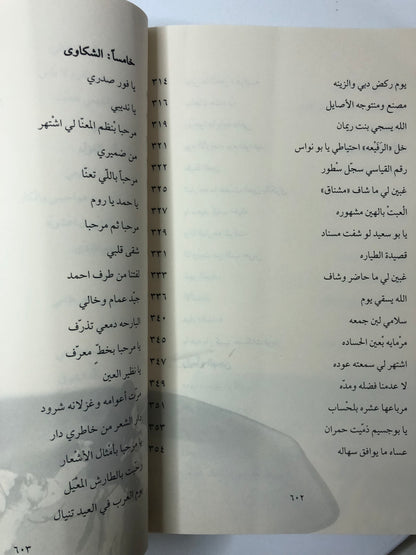 يوم ركض دبي والزينه ٣١٤
مصنع ومنتوجه الأصايل ٣١٦
الله يسجي بنت ريمان ٣١٩
خل «الرّقيْعه» احتياطي يا بو نواس ٣٢١
رقم القياسي سجّل سْطور ٣٢٢
غبين لي ما شاف «مشناق» ٣٢٥
العبتْ بالهين مشهوره ٣٢٧
يا بو سعيد لو شفت مسناد ٣٢٩
قصيدة الطياره ٣٣١
غبين لي ما حاضر وشاف ٣٣٣
الله يسقي يوم ٣٣٦
سلامي لين جمعه ٣٤٠
مرمايه بْعين الحساده ٣٤٥
اشتهر لي سمعته عوده ٣٤٧
لا عدمنا فضله ومدّه ٣٤٩
مرباعها عشره بلحْساب ٣٥١
يا بوجسيم ذمّيت حمران ٣٥٣
عساه ما يوافق سهاله ٣٥٤
٦٠٢
خامساً: الشكاوى
يا فور صدري
يا نديبي
مرحبا يُنظم المعنّا لي اشْتهر
من ضميري
مرحباً باللّي تعنّا
يا حمد يا روم
مرحبا ثم مرحبا
شفى قلبي
لفتنا من طرف احمد
جيّد عمام وخالي
البارحه دمعي تذرّف
يا مرحبا بخطٍ معرّف
يا نظير العين
مرّت أعوامه وغزلانه شرود
دار الشعر من خاطري دار
يا مرحبا بأمثال الأشْعار
رحّبت بالطارش المعْيّل
يوم الغرب في العيد تنيال
٦٠٣